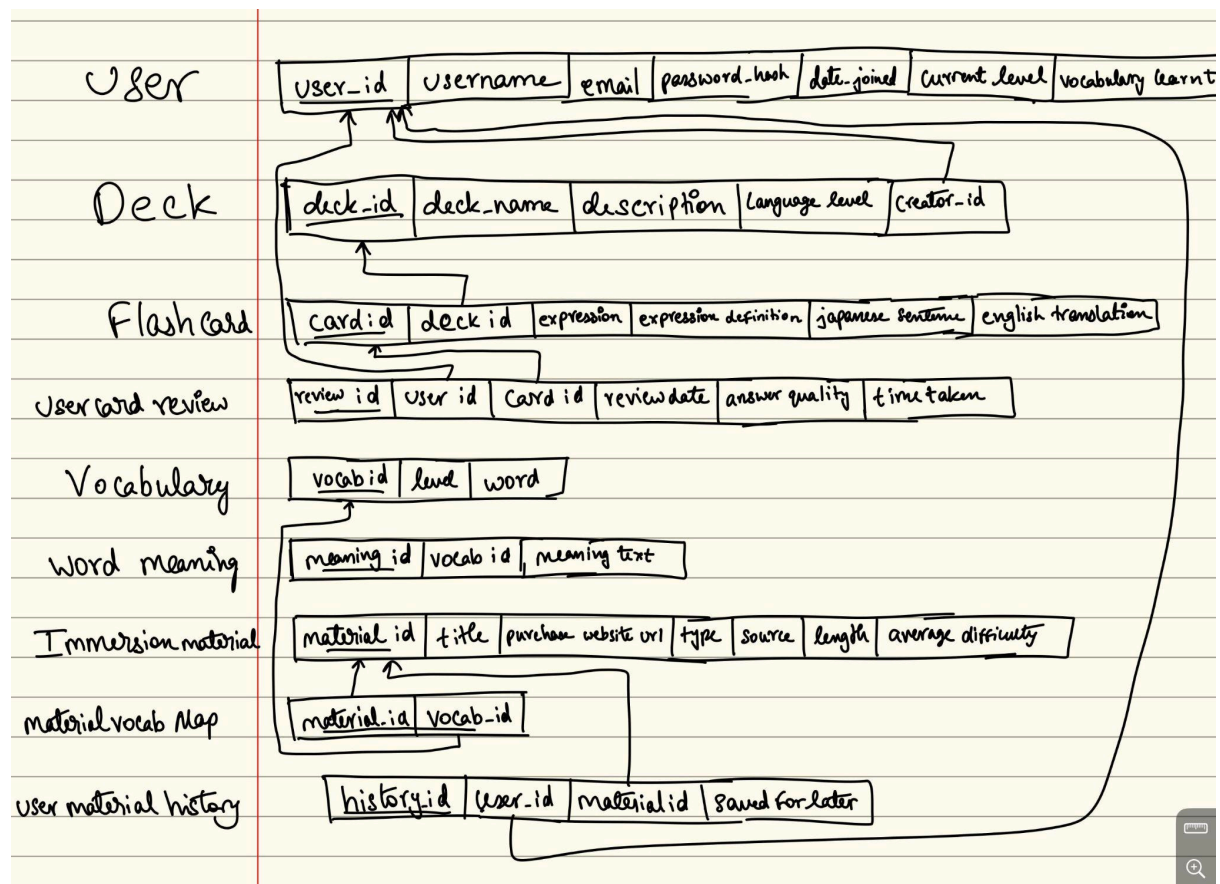 User user_id username email password_hash date_joined current_level vocabulary learnt
Deck deck_id deck_name description Language level creator_id
Flashcard card id deck id expression expression definition japanese sentence english translation
User card review review id user id card id review date answer quality time taken
Vocabulary vocab id level word
word meaning meaning id vocab id meaning text
Immersion material material id title purchase website url type source length average difficulty
material vocab Map material_id vocab_id
user material history history_id user_id material id saved for later